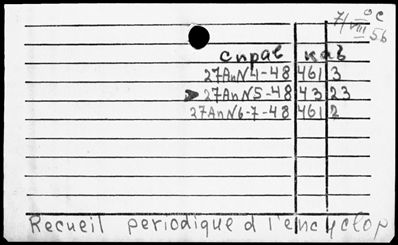 7/VIII 56
справ каб
27AnN4-48 461 3
27AnN5-48 43 23
27AnN6-7-48 461 2
Recueil periodique d l'encyclop